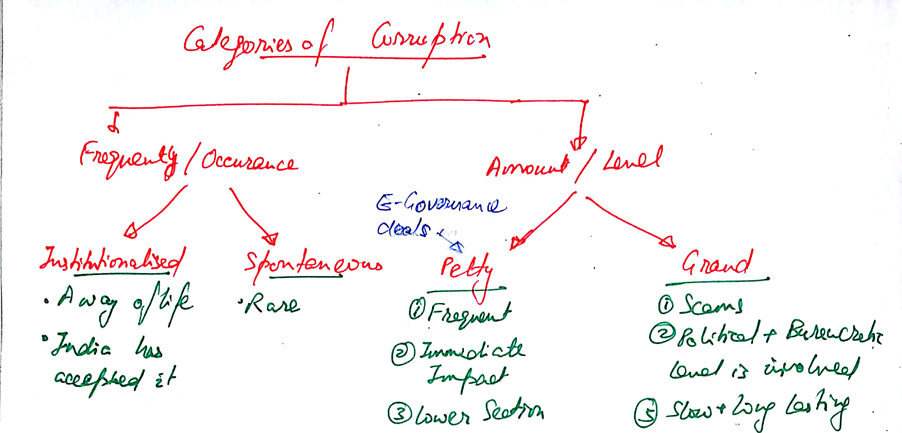 Categories of Corruption
Frequently / Occurance
Amount / Level
E-Governance
deals
Institutionalised
• A way of life
• India has
accepted it
Spontaneous
• Rare
Petty
① Frequent
② Immediate
Impact
③ Lower Section
Grand
① Scams
② Political + Bureucratic
Level is involved
③ Slow + long lasting